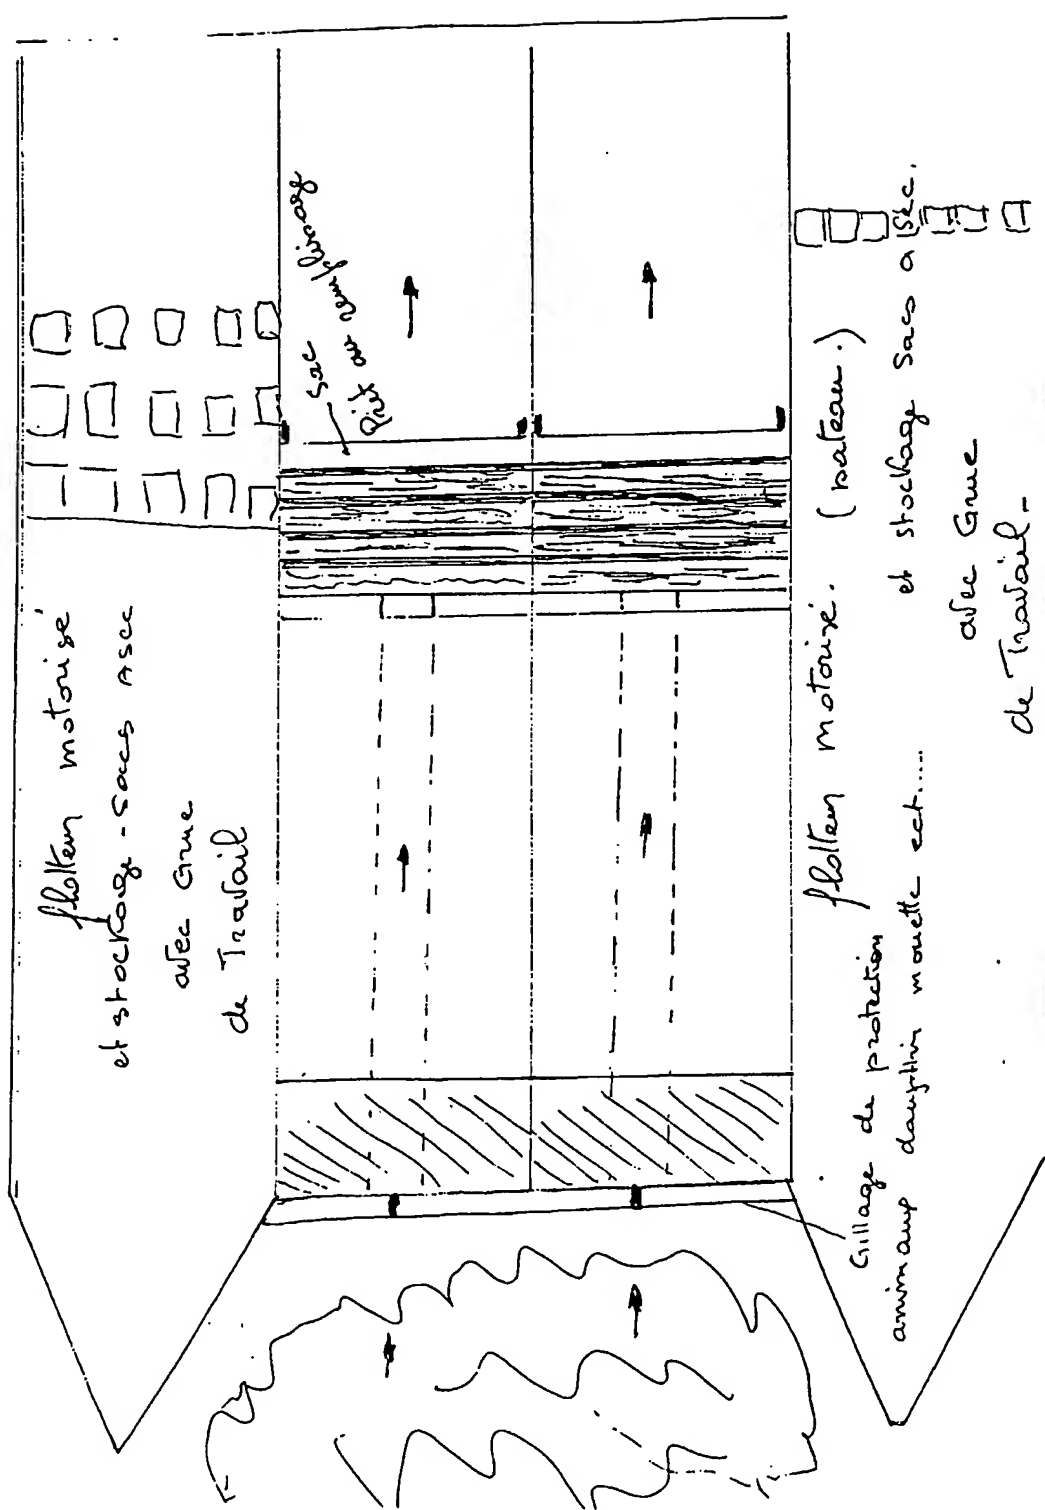 flotteur motorisé
et stockage - sacs Asec
avec Grue
de Travail
sac
Prêt au remplissage
flotteur motorisé. (bateau.)
et stockage sacs a sec.
avec Grue
de Travail -
Grillage de protection
animaux dauphin mouette ect.....